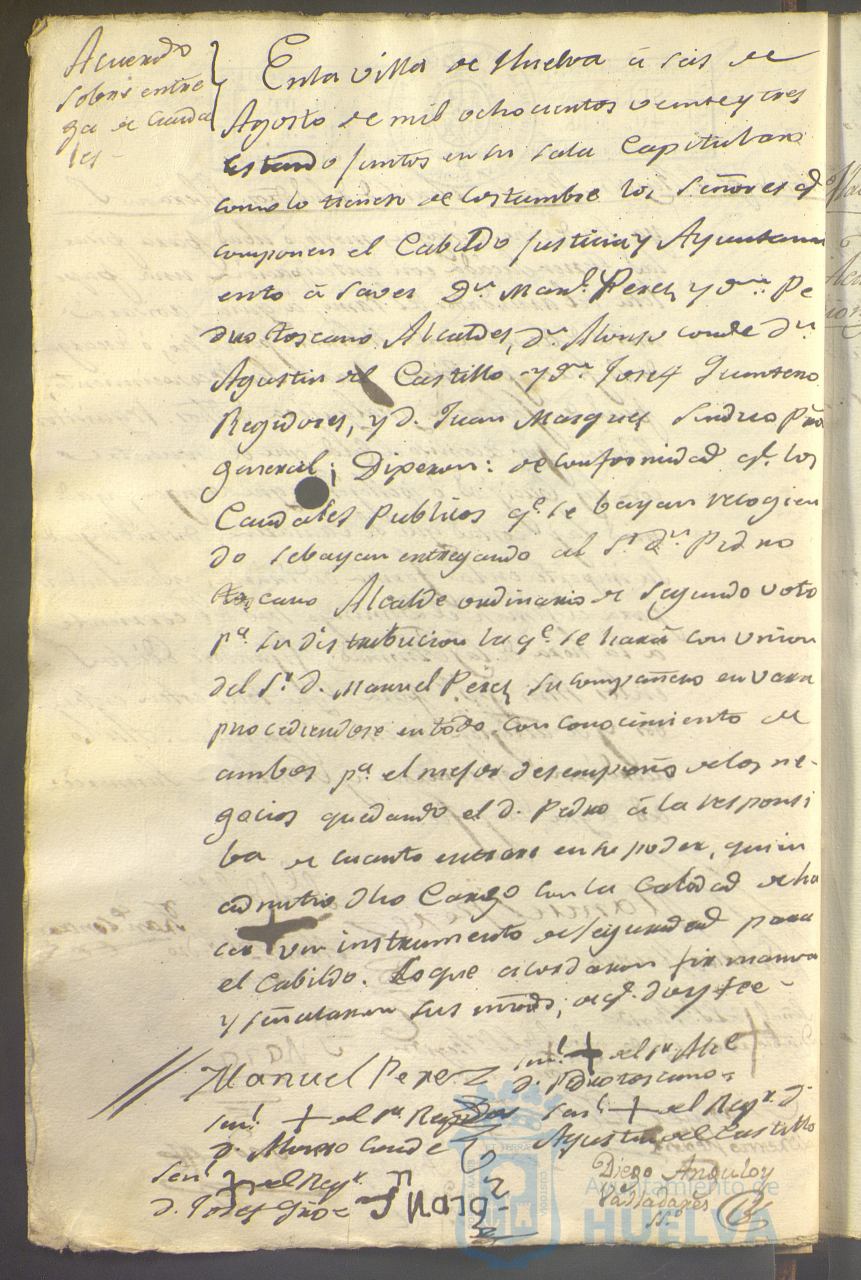 Acuerdo
sobre entre
ga de Cauda
les
En la villa de Huelva à seis de
Agosto de mil ochocientos veinte y tres
Estando juntos en su sala Capitular
como lo tienen de costumbre los Señores q.e
componen el Cabildo Justicia y Ayuntami
ento à saver Dn. Man.l Perez y Dn. Pe
dro toscano Alcaldes, Dn. Alonso conde Dn.
Agustin del Castillo y Dn. Josef Quintero
Regidores, y D. Juan Marquez Sindico
general; Digeron: de conformidad q.e los
Caudales Publicos q.e se bayan recogien
do se bayan entregando al S.r Dn. Pedro
toscano Alcalde ordinario de segundo voto
p.a su distribucion la q.e se hará con union
del S.r D. Manuel Perez su compañero en vara
procediendose en todo con conocimiento de
ambos p.a el mejor desempeño de los ne-
gocios quedando el D. Pedro à la responsi
va de cuanto entrare en su poder, quien
admitio dho Cargo con la Calidad de ha
cer un instrumento de seguridad para
el Cabildo. Lo que acordaron firmaron
y señalaron sus mrds, de q.e doy fee-
Manuel Perez
señ.l + del Sr. Alc.e
D. Pedro toscano
señ.l + del Sr. Regidor
D. Alonso Conde
señ.l + del Reg.r D.
Agustin del Castillo
señ.l + del Reg.r
D. Josef Qñro
Diego Angulo y
Valladares
Ayuntamiento de
HUELVA